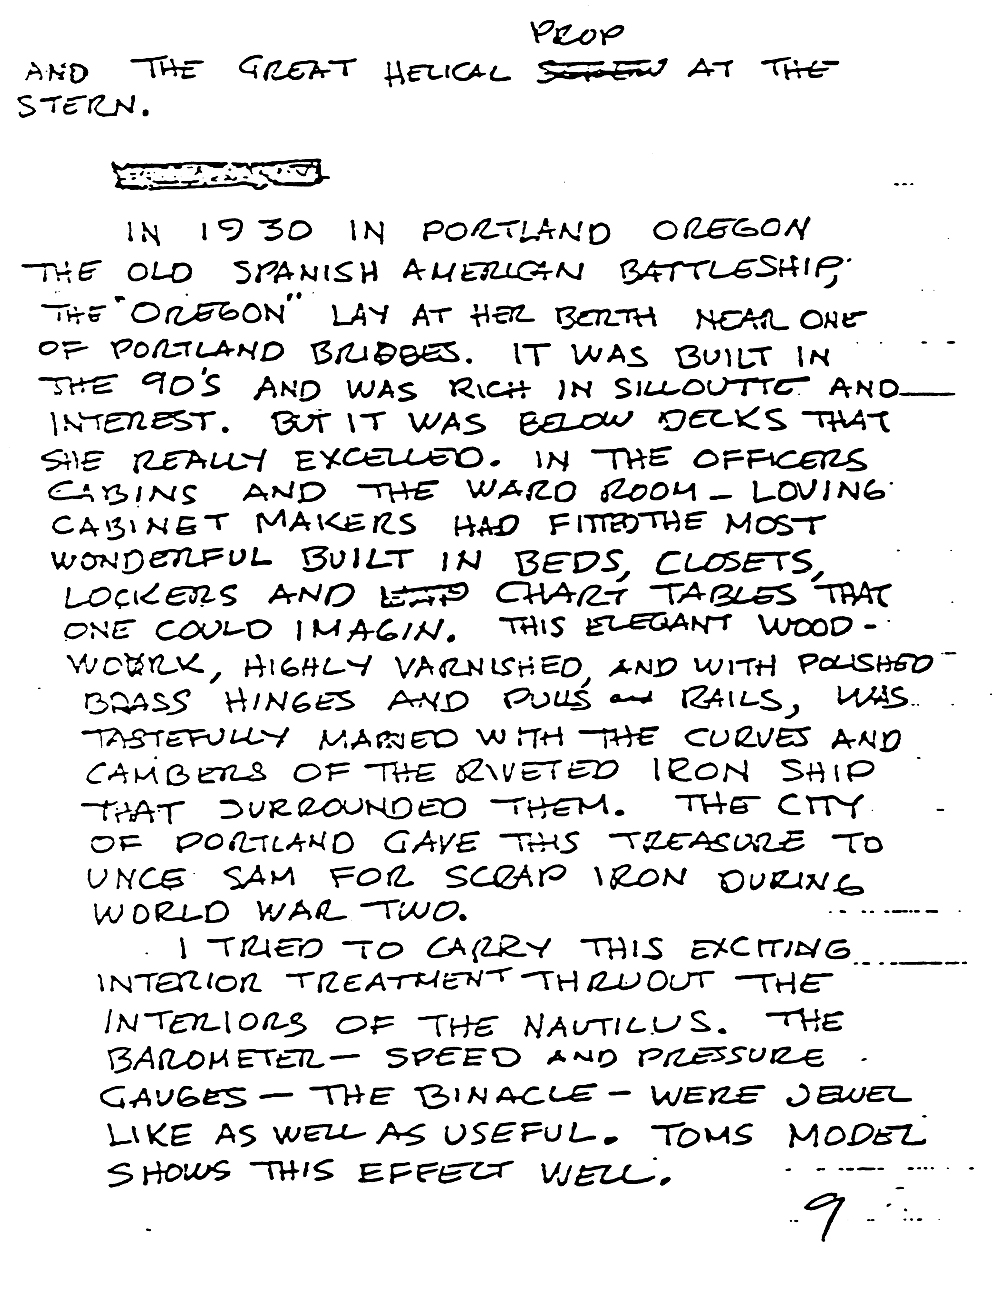 PROP
AND THE GREAT HELICAL SCREW AT THE
STERN.
IN 1930 IN PORTLAND OREGON
THE OLD SPANISH AMERICAN BATTLESHIP,
THE "OREGON" LAY AT HER BERTH NEAR ONE
OF PORTLAND BRIDGES. IT WAS BUILT IN
THE 90'S AND WAS RICH IN SILLOUTTE AND
INTEREST. BUT IT WAS BELOW DECKS THAT
SHE REALLY EXCELLED. IN THE OFFICERS
CABINS AND THE WARD ROOM - LOVING
CABINET MAKERS HAD FITTED THE MOST
WONDERFUL BUILT IN BEDS, CLOSETS,
LOCKERS AND CHART TABLES THAT
ONE COULD IMAGIN. THIS ELEGANT WOOD-
WORK, HIGHLY VARNISHED, AND WITH POLISHED
BRASS HINGES AND PULLS and RAILS, WAS
TASTEFULLY MARRIED WITH THE CURVES AND
CAMBERS OF THE RIVETED IRON SHIP
THAT SURROUNDED THEM. THE CITY
OF PORTLAND GAVE THIS TREASURE TO
UNCE SAM FOR SCRAP IRON DURING
WORLD WAR TWO.
I TRIED TO CARRY THIS EXCITING
INTERIOR TREATMENT THRUOUT THE
INTERIORS OF THE NAUTILUS. THE
BAROMETER - SPEED AND PRESSURE
GAUGES - THE BINACLE - WERE JEWEL
LIKE AS WELL AS USEFUL. TOMS MODEL
SHOWS THIS EFFECT WELL.
9